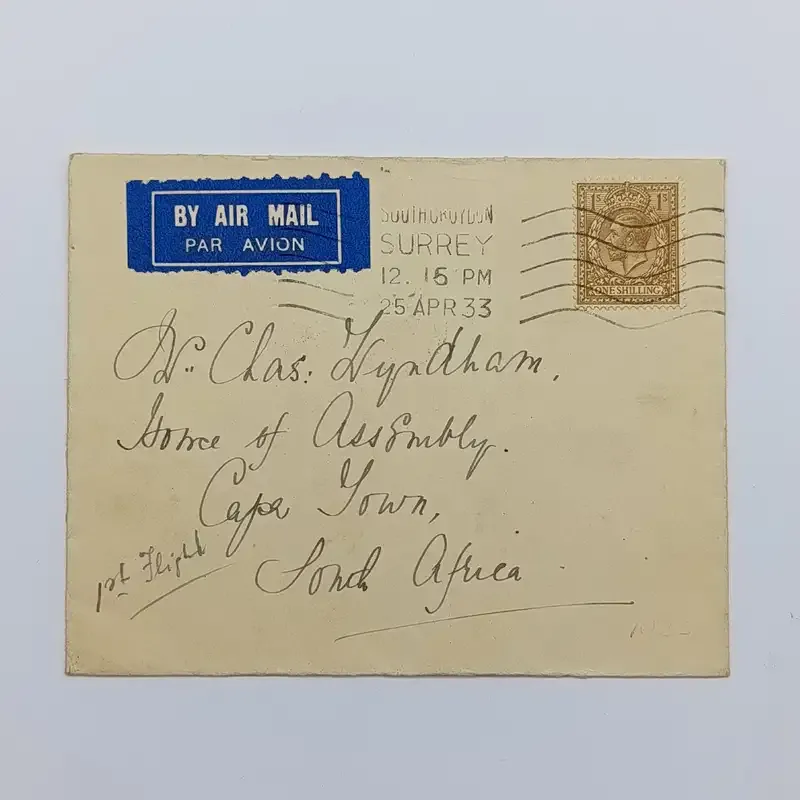 BY AIR MAIL
PAR AVION
SOUTH CROYDON
SURREY
12. 15 PM
25 APR 33
1S 1S
ONE SHILLING
Chas: Wyndham,
House of Assembly.
Cape Town,
South Africa
1st Flight